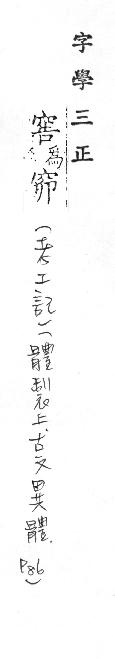 字學三正
窖為窌(考工記)(體製上.古文異體.P86)